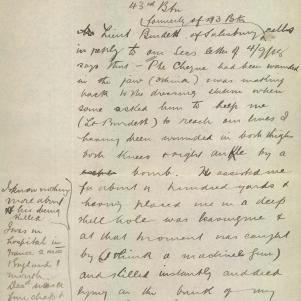 43rd Btn
formerly of 43 Btn
Lieut Burdett of Salisbury calls
in reply to our Secs letter of 4/9/18
says that - Pte Cheyne had been wounded
in the jaw (I think) & was making
back to the dressing station when
some asked him to help me
(Lt Burdett) to reach our lines I
having been wounded in both thighs
both knees & right ankle by a
bomb. He assisted me
for about a hundred yards &
having placed me in a deep
shell hole was leaving me &
at that moment was caught
by (I think a machine gun)
and killed instantly and died
lying on the brink of my
I know nothing
more about
his being
killed
I was in
hospital in
France 2 mos
& England 1
month
Dead was a
fine chap &